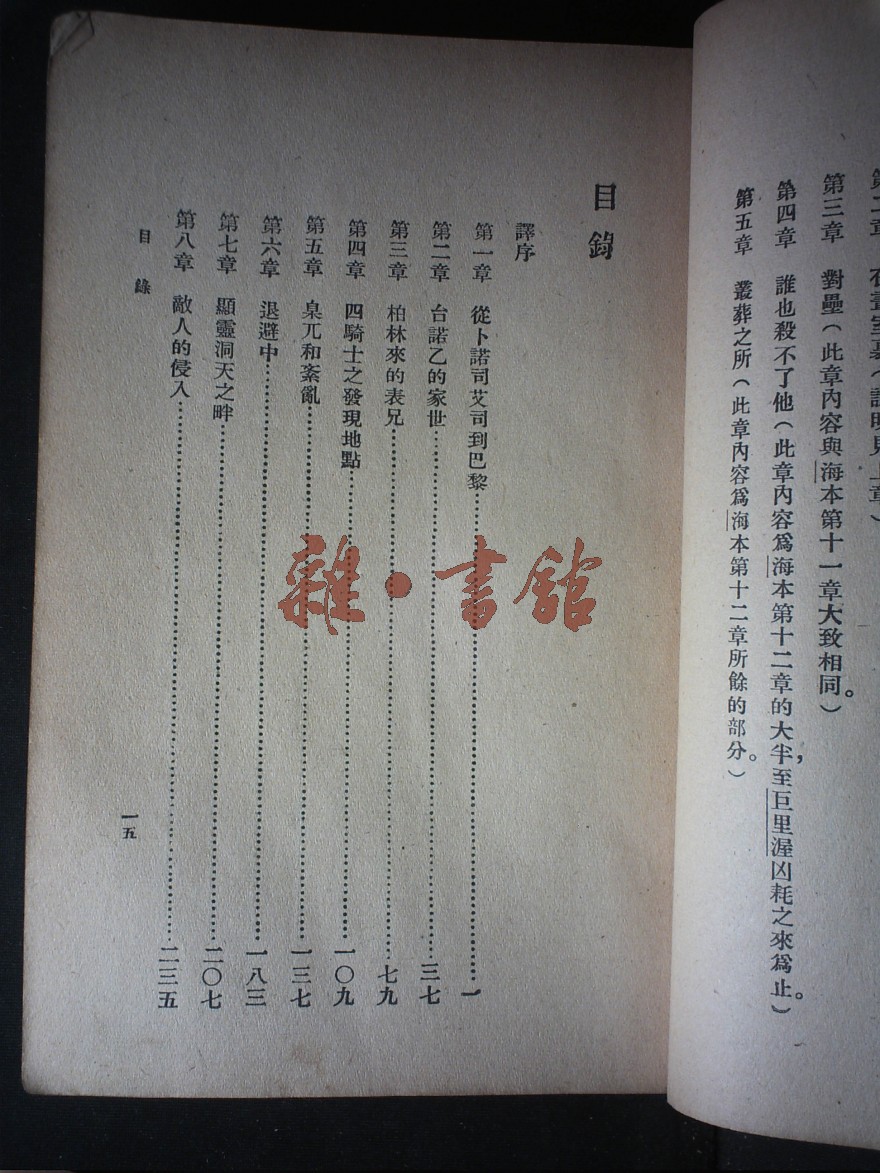 第三章　對壘（此章內容與海本第十一章大致相同。）
第四章　誰也殺不了他（此章內容爲海本第十二章的大半，至巨里渥凶耗之來爲止。）
第五章　叢葬之所（此章內容爲海本第十二章所餘的部分。）
目錄
譯序
第一章　從卜諾司艾司到巴黎……一
第二章　台諾乙的家世……三七
第三章　柏林來的表兄……七九
第四章　四騎士之發現地點……一〇九
第五章　臬兀和紊亂……一三七
第六章　退避中……一八三
第七章　顯靈洞天之畔……二〇七
第八章　敵人的侵入……二三五
目錄
一五
雜·書館